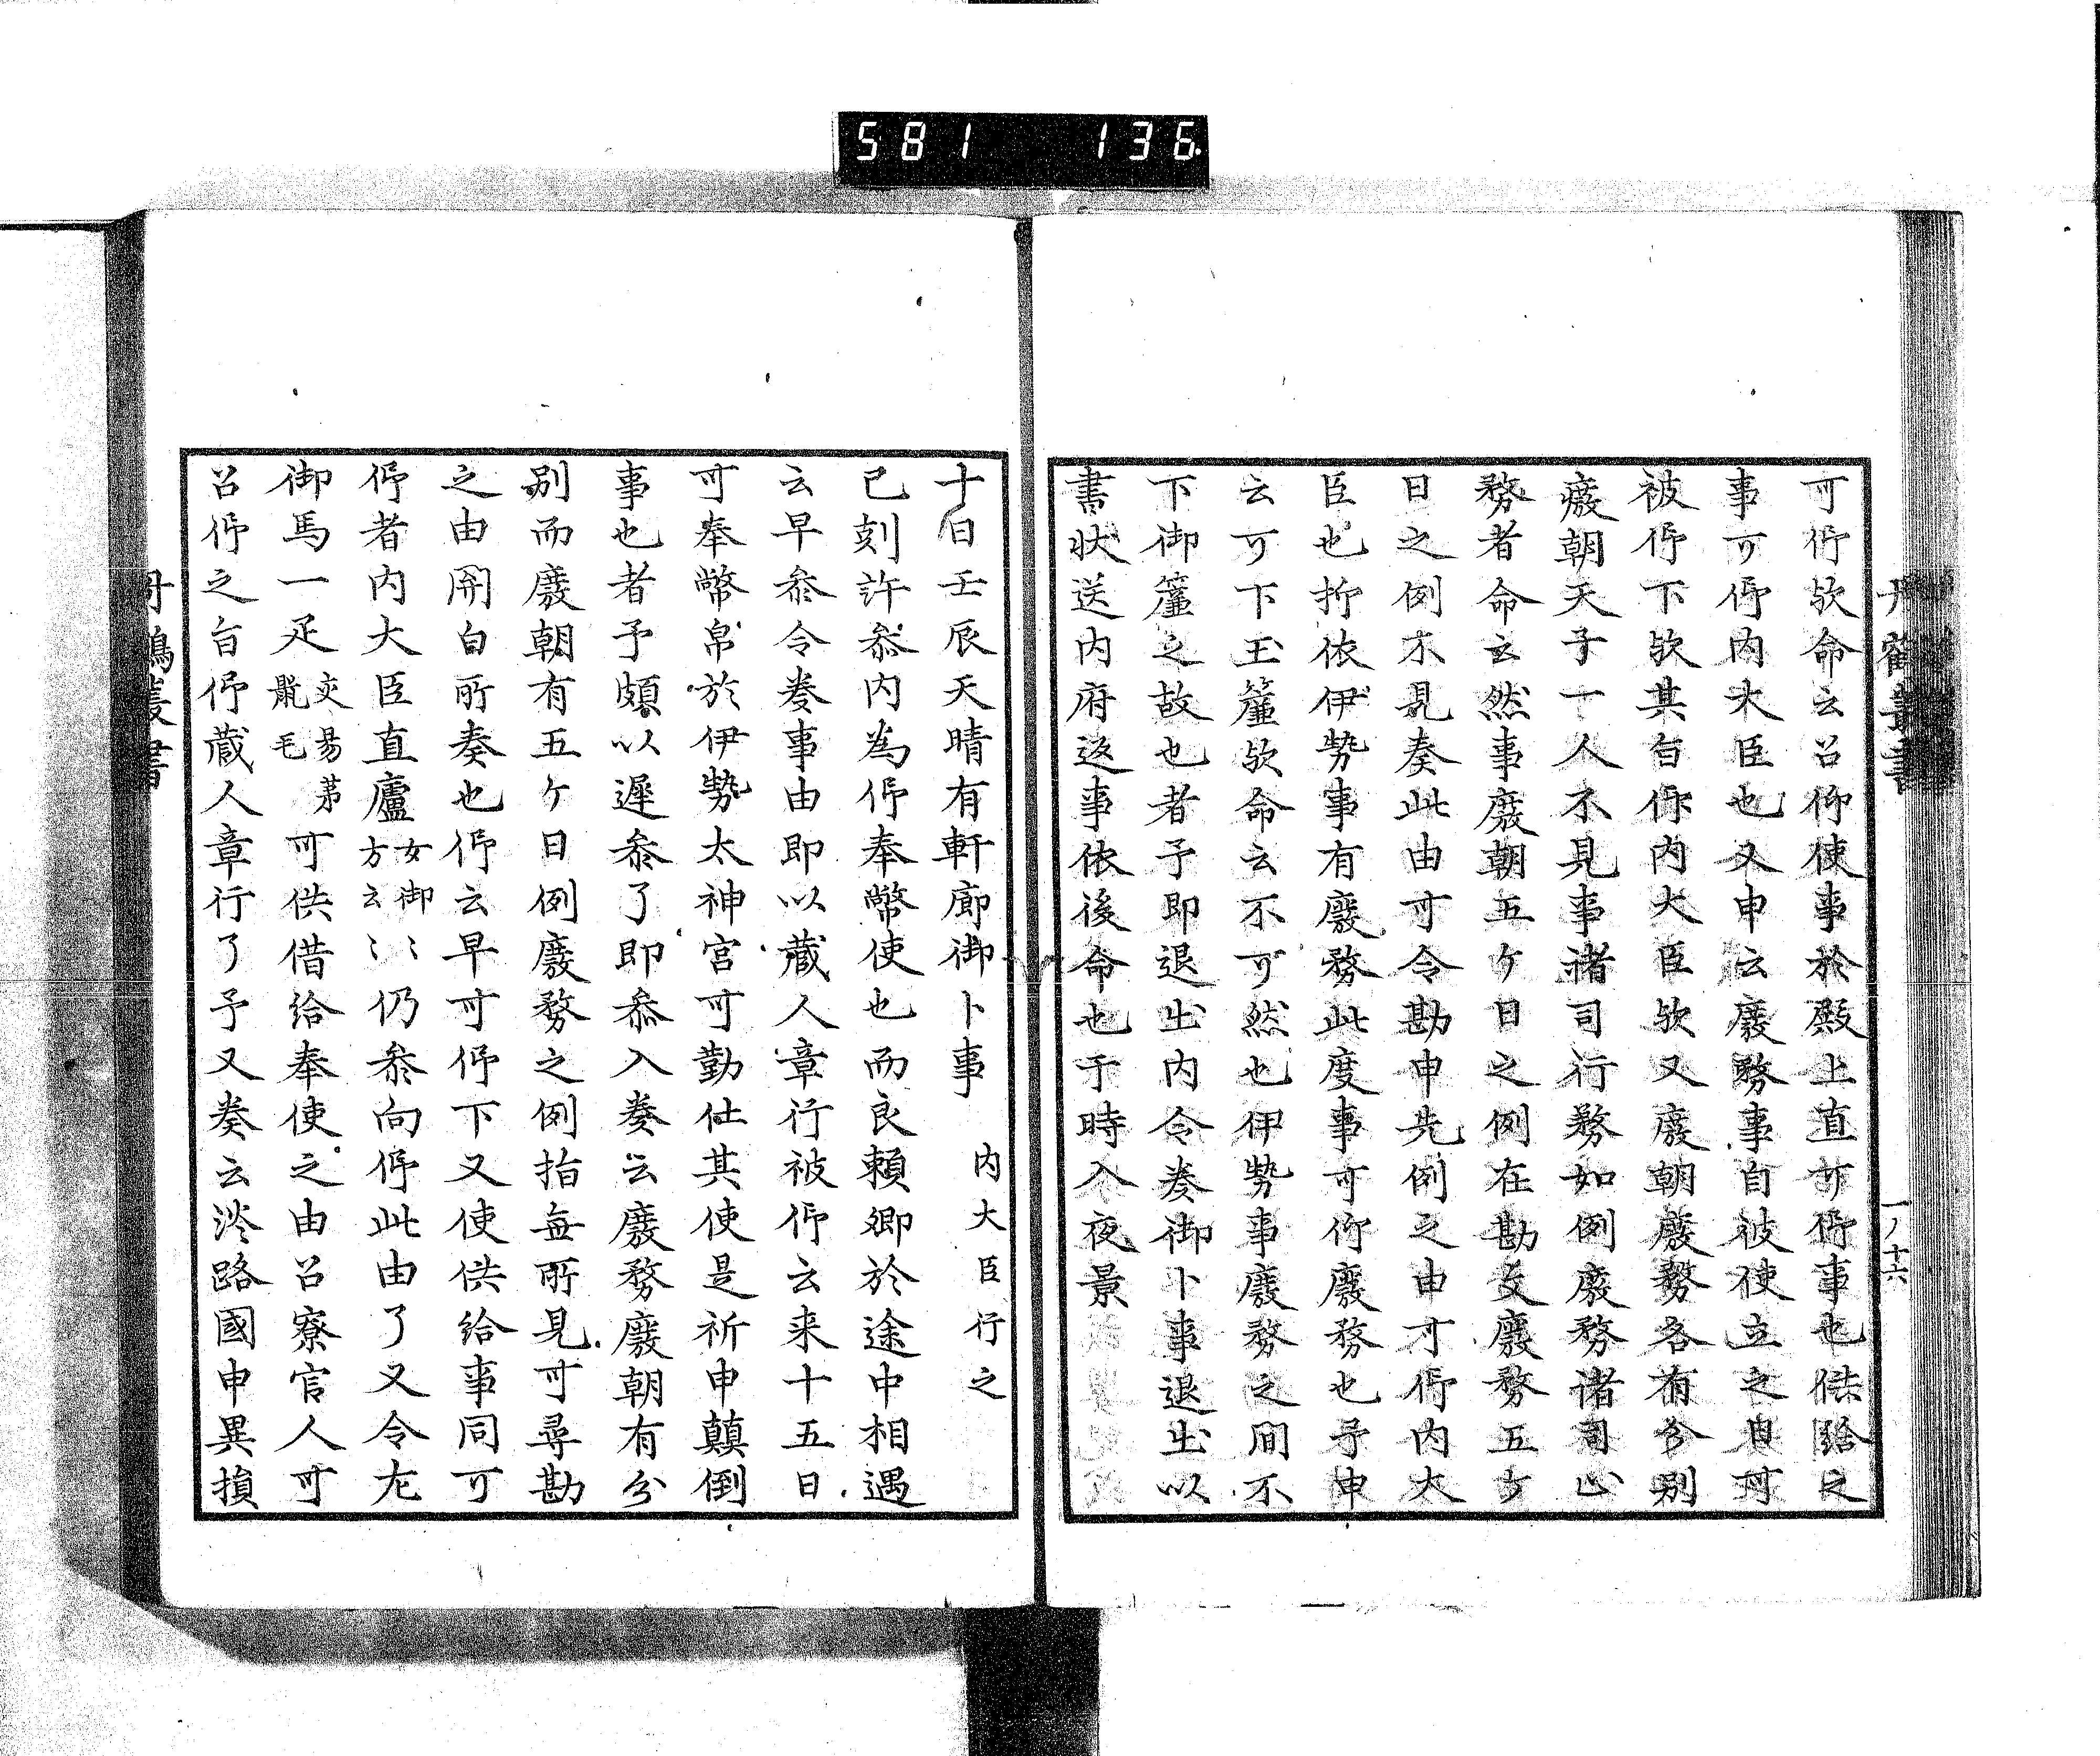 581 136
丹鶴叢書
一ノ十六
可仰欤命云召仰使事於殿上直可仰事也供給之
事可仰内大臣也又申云廢務事自被使立之日可
被仰下欤其旨仰内大臣欤又廢朝廢務各有分別
廢朝天子一人不見事諸司行務如例廢務諸司止
務者命云然事廢朝五ケ日之例在勘文廢務五ケ
日之例不見奏此由可令勘申先例之由可仰内大
臣也抑依伊勢事有廢務此度事可仰廢務也予申
云可下玉簾欤命云不可然也伊勢事廢務之間不
下御簾之故也者予即退出内令奏御卜事退出以
書状送内府返事依後命也于時入夜景
十日壬辰天晴有軒廊御卜事 内大臣行之
已刻許参内為仰奉幣使也而良頼卿於途中相遇
云早参令奏事由即以蔵人章行被仰云来十五日
可奉幣帛於伊勢太神宮可勤仕其使是祈申顛倒
事也者予頗以遅参了即参入奏云廢務廢朝有分
別而廢朝有五ケ日例廢務之例指無所見可尋勘
之由関白所奏也仰云早可仰下又使供給事同可
仰者内大臣直廬女御方云〻〻仍参向仰此由了又令尤
御馬一疋㚑昜苐毛可供借給奉使之由召寮官人可
召仰之旨仰蔵人章行了予又奏云淡路國申異損
丹鶴叢書